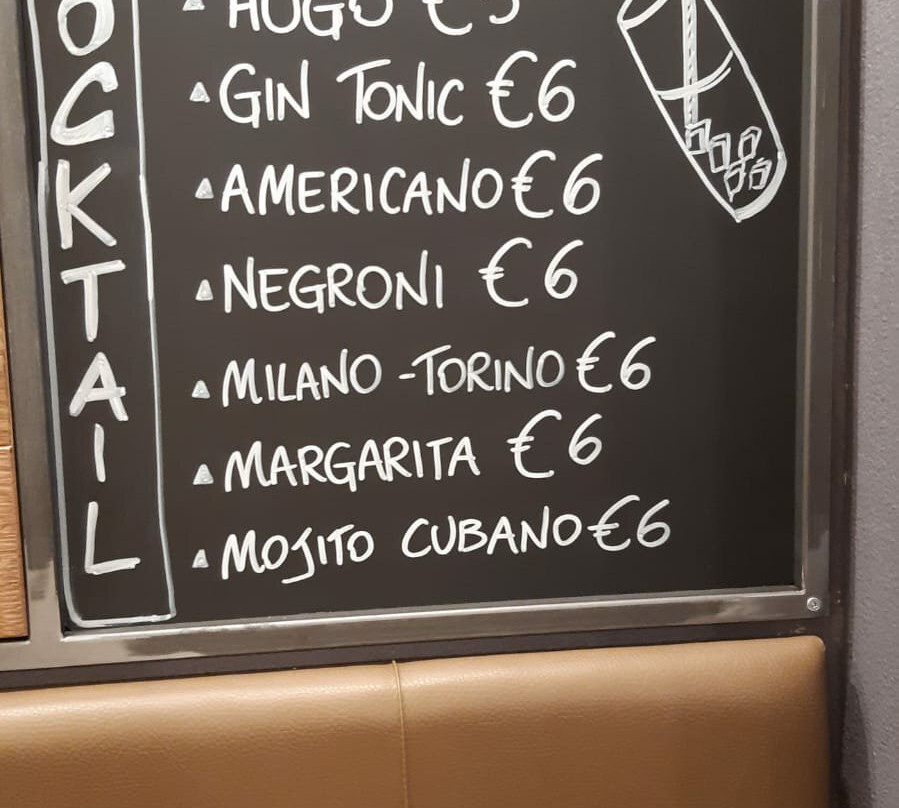 OCKTAIL
HUGO €5
GIN TONIC €6
AMERICANO €6
NEGRONI €6
MILANO - TORINO €6
MARGARITA €6
MOJITO CUBANO €6